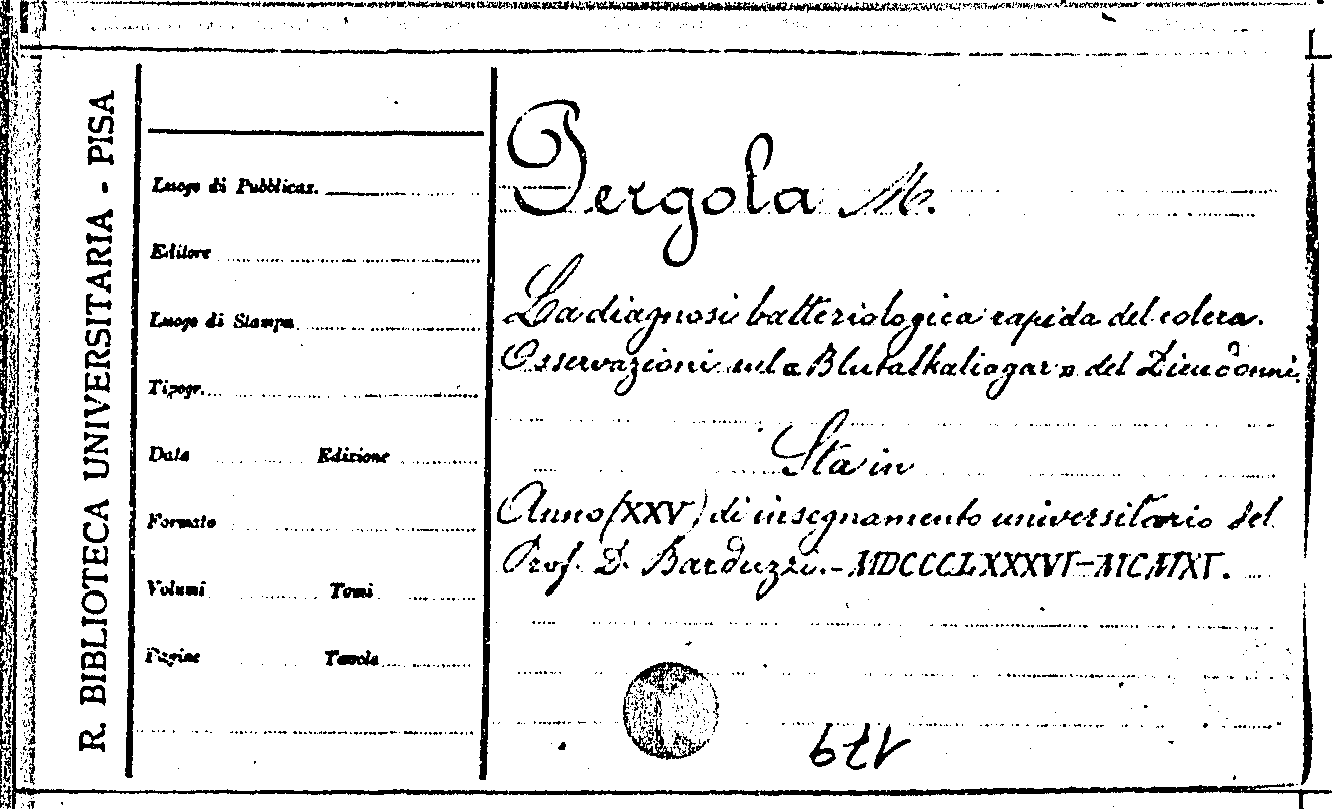 R. BIBLIOTECA UNIVERSITARIA - PISA
Luogo di Pubblicaz.
Editore
Luogo di Stampa
Tipogr.
Data Edizione
Formato
Volumi Tomi
Pagine Tavole
Pergola M.
La diagnosi batteriologica rapida del colera.
Osservazioni sul « Blutalkaliagar » del Dieudonné.
Sta in
Anno (XXV) di insegnamento universitario del
Prof. D. Barduzzi. - MDCCCLXXXVI-MCMXI.
179